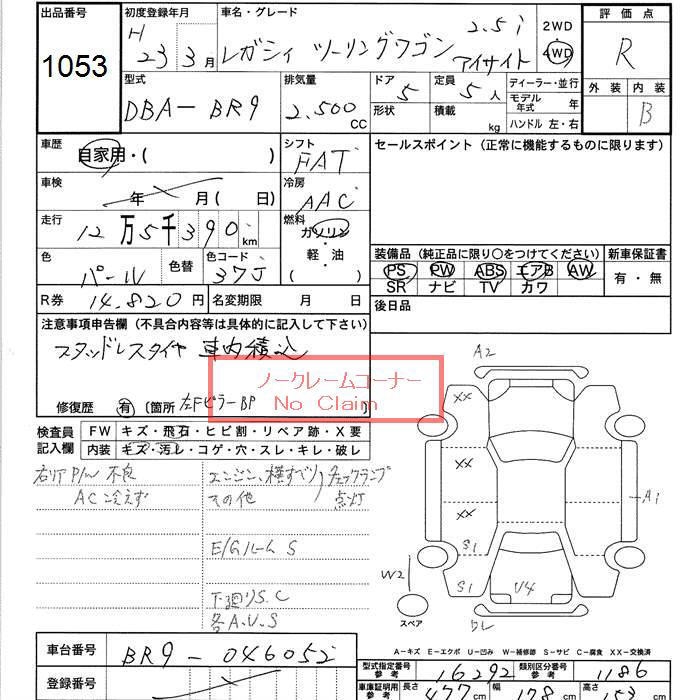 出品番号 初度登録年月 車名・グレード 評価点
1053 H 23 3月 レガシィ ツーリングワゴン 2.5i アイサイト 2WD 4WD R
型式 排気量 ドア 定員 ディーラー・並行 外装 内装
DBA-BR9 2.500 CC 5 5人 モデル年式 年 B
形状 積載 kg ハンドル 左・右
車歴 自家用・( ) シフト FAT セールスポイント (正常に機能するものに限ります)
車検 年 月 ( 日) 冷房 AAC
走行 12万5千390km 燃料 ガソリン・軽・油 ( )
色 パール 色替 色コード 37J
装備品 (純正品に限り○をつけてください) 新車保証書
PS PW ABS エアB AW 有・無
SR ナビ TV カワ
R券 14.820円 名変期限 月 日 後日品
注意事項申告欄 (不具合内容等は具体的に記入して下さい)
スタッドレスタイヤ 車内積込
ノークレームコーナー
No Claim
修復歴 有 〔箇所 左FピラーBP
A2
XX
XX
XX
A1
S1
S1
U4
W2
スペア
検査員記入欄 FW キズ・飛石・ヒビ割・リペア跡・X要
内装 キズ・汚レ・コゲ・穴・スレ・キレ・破レ
右リア P/W 不良 エンジン、横すべり、チェックランプ
AC 冷えず その他 点灯
E/Gルーム S
下廻りS.C
各A.U.S
A-キズ E-エクボ U-凹み W-補修跡 S-サビ C-腐食 XX-交換済
車台番号 BR9-046052
型式指定番号 参考 16292 類別区分番号 参考 1186
登録番号
車庫証明用 参考 長さ 477cm 幅 178cm 高さ 153cm